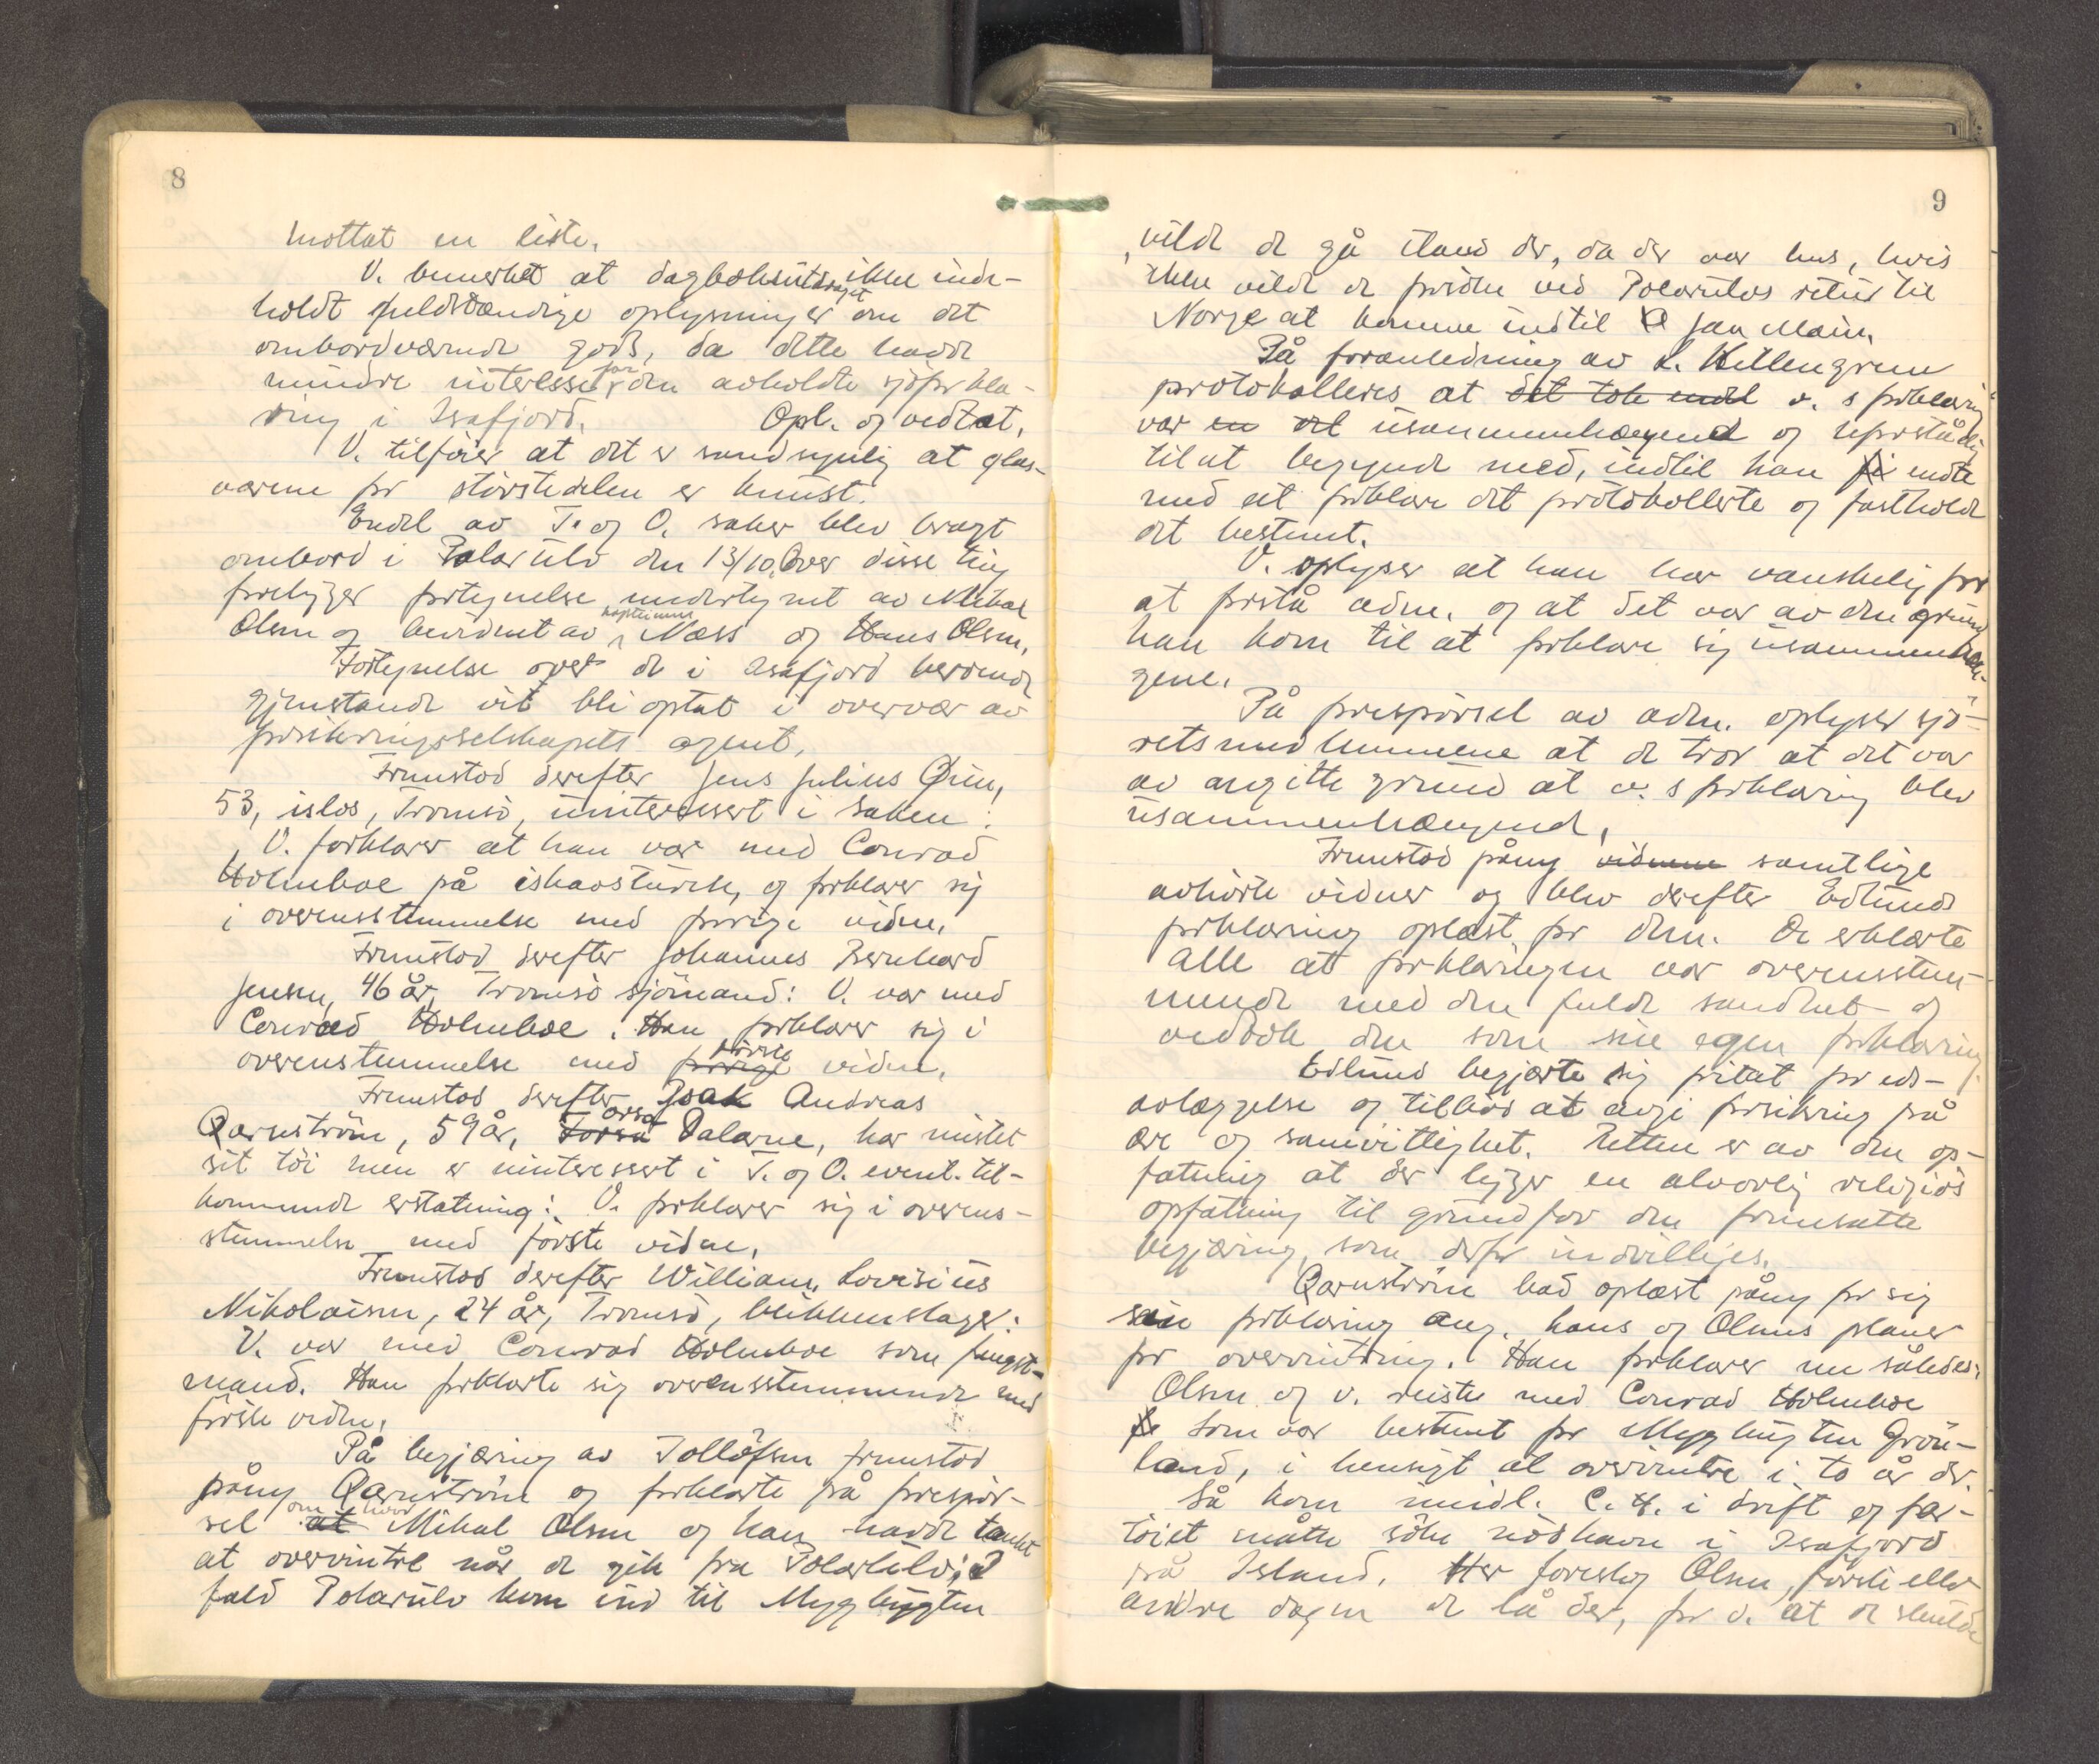 8
mottat en liste.
V. bemerket at dagboksutdraget ikke inde-
holdt fuldstændige oplysninger om det
ombordværende gods, da dette hadde
mindre interesse for den avholdte sjöforkla-
ring i Isafjord. Opl. og vedtat.
V. tilföier at det er sandsynlig at glas-
varene for störstedelen er knust.
Endel av T. og O. saker blev bragt
ombord i Polarulv den 13/10. Over disse ting
foreligger fortegnelse undertegnet av Mikal
Olsen og bevidnet av kapteinene Næss og Hans Olsen.
Fortegnelse over de i Isafjord beroende
gjenstande vil bli optat i overvær av
forsikringsselskapets agent.
Fremstod derefter Jens Julius Öien,
53, islos, Tromsö, uinteressert i saken:
V. forklarer at han var med Conrad
Holmboe på ishavsturen, og forklarer sig
i overensstemmelse med forrige vidne.
Fremstod derefter Johannes Bernhard
Jensen, 46 år, Tromsö sjömand: V. var med
Conrad Holmboe. Han forklarer sig i
overenstemmelse med forrige förste vidne.
Fremstod derefter Isak Andreas
Qarnström, 59 år, Forsa Orsa Dalarne, har mistet
sit töi men er uinteressert i T. og O. event. til-
kommende erstatning: V. forklarer sig i overens-
stemmelse med förste vidne.
Fremstod derefter William Lovisius
Nikolaisen, 24 år, Tromsö, blikkenslager:
V. var med Conrad Holmboe som fangst-
mand. Han forklarte sig overensstemmende med
förste vidne.
På begjæring av Tollöfsen fremstod
påny Qarnström og forklarte på forespör-
sel at om hvor Mikal Olsen og han hadde tænkt
at overvintre når de gik fra Polarulv: I
fald Polarulv kom ind til Myggbugten
9
vilde de gå iland der, da der var hus, hvis
ikke vilde de forsöke ved Polarulvs retur til
Norge at komme indtil Jan Main.
På foranledning av L. Killengreen
protokolleres at det tok endel v. s forklaring
var en del usammenhængende og uforståelig
til at begynde med, indtil han endte
med at forklare det protokollerte og fastholde
det bestemt.
V. oplyser at han har vanskelig for
at forstå adm. og at det var av den grund
han kom til at forklare sig usammenhæn-
gene.
På forespörsel av adm. oplyser sjö-
retsmedlemmene at de tror at det var
av angitte grund at v. s forklaring blev
usammenhængende.
Fremstod påny vidnene samtlige
avhörte vidner og blev derefter Edlunds
forklaring oplæst for dem. De erklærte
alle at forklaringen var overensstem-
mende med den fulde sandhet og
vedtok den som sin egen forklaring.
Edlund begjærte sig fritat for eds-
avlæggelse og tilböd at avgi forsikring på
ære og samvittighet. Retten er av den op-
fatning at der ligger en alvorlig religiös
opfatning til grund for den fremsatte
begjæring, som derfor indvilliges.
Qarnström bad oplæst påny for sig
sin forklaring ang. hans og Olsens planer
for overvintring. Han forklarer nu således:
Olsen og v. reiste med Conrad Holmboe
som var bestemt for Myggbugten Grön-
land, i hensigt at overvintre i to år der.
Så kom imidl. C. H. i drift og far-
töiet måtte söke nödhavn i Isafjord
på Island. Her foreslog Olsen, förste eller
andre dagen de lå der, for v. at de skulde